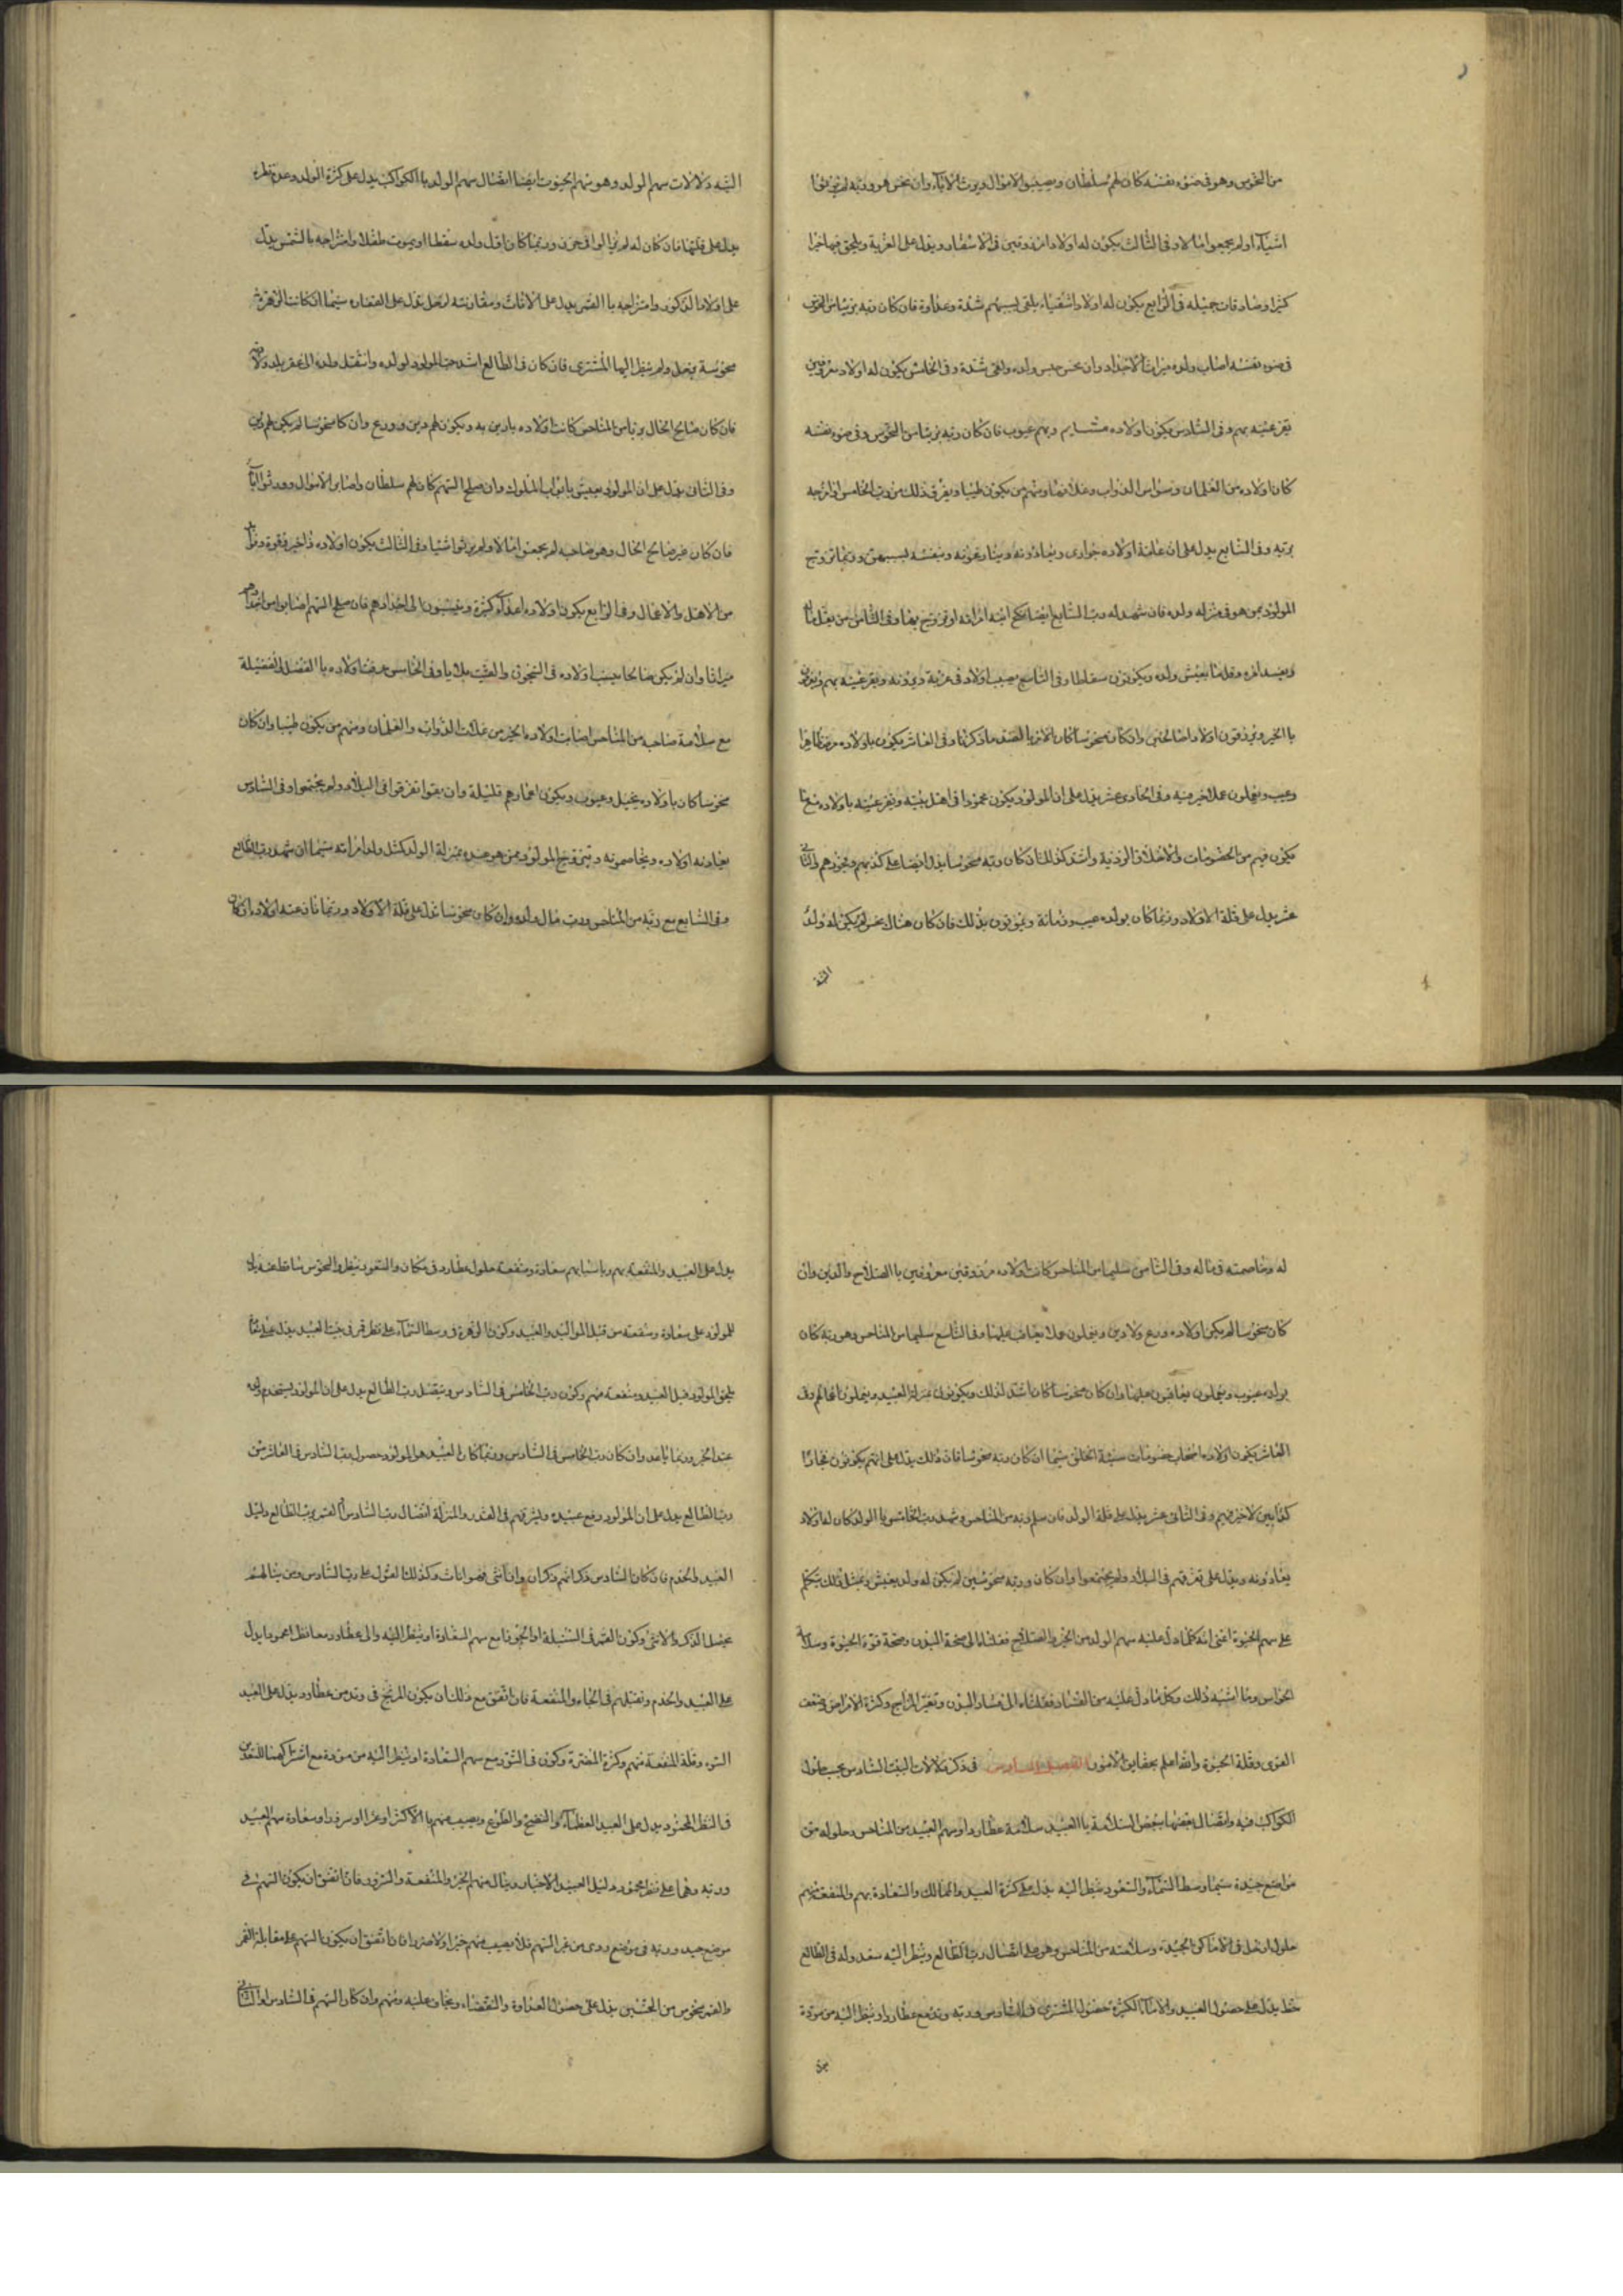 من النحوس وهو فى ضوء نفسه كان لهم سلطان ويصيبوا الاموال ويرث الاباء وان نحس هو وربه لم يرثوا
اشياء ولم يجمعوا مالا وفى الثالث يكون له اولاد مرزوقين فى الاسفار ويدل على الغربة ويلحق فيها خيرا
كثيرا وصادقات جميله فى الرابع يكون له اولاد اشقياء يلقى بسببهم شدة وعداوة فان كان ربه بريئا من النحوس
فى ضوء نفسه اصاب ولده ميراث الاجداد وان نحس حبس ولده ولقى شدة وفى الخامس يكون له اولاد معروفين
تقر عينه بهم وفى السادس يكون اولاده مشايم وبهم عيوب فان كان ربه بريئا من النحوس وفى ضوء نفسه
كان اولاده من الغلمان وسواس الدواب ومنهم من يكون طبيبا ويعرف ذلك من رب الخامس اذا مازجه
بربه وفى السابع يدل على ان عامة اولاده جوارى ويعادونه وينازعونه بسببهن وربما تزوج
المولود بمن هو فى منزلة ولده فان شهد له رب السابع ايضا نكح ابنه امراته او تزوج بها وفى الثامن من
ويفسد امره وقلما يعيش ولده ويكونون سقاطا وفى التاسع يصيب اولاد فى غربة ويودونه وتقر عينه بهم
با الخير ويرزقون اولادا صالحين وان كان منحوسا كان الامر با الضد ما ذكرنا وفى العاشر يكون باولاده مرض ظاهرا
وعيب ويعملون عملا لا خير فيه وفى الحادى عشر يدل على ان المولود يكون محمودا فى اهل بيته وتقر عينه باولاده
يكون فيهم من الخصومات والاخلاق الردية واشد لذلك ان كان ربه منحوسا يدل ايضا على كذبهم وفجورهم وفى الثانى
عشر يدل على قلة الاولاد وربما كان بولده عيب وزمانة ويموتون بذلك فان كان هناك نحس لم يكن له ولد
اليه دلالات سهم الولد وهو سهم الحيوة ايضا اتصال سهم الولد با الكواكب يدل على كثرة الولد وعدم نظره
يدل على قلتها فان كان له لم يزالوا فى حزن وربما كان اول ولده سقطا او يموت طفلا وامتزاجه بالشمس يدل
على اولاد الذكور وامتزاجه با القمر يدل على الاناث ومقارنته لزحل يدل على العقاره سيما اذا كانت الزهرة
منحوسة بزحل ولم ينظر اليها المشترى فان كان فى الطالع اشد حبا المولود لولده وانتقل ولده الى غير بلد ولاده
فان كان صالح الحال بريا من المناحس كانت اولاده بارين به ويكون لهم دين وورع وان كان منحوسا لم يكن لهم دين
وفى الثانى يدل على ان المولود يعيش بابواب الملوك وان صلح السهم كان لهم سلطان واصابوا الاموال وورثوا الابا
فان كان غير صالح الحال وهو صاحبه لم يجمعوا مالا ولم يرثوا شيا وفى الثالث يكون اولاده ذا خير وقوة
من الاهل والاعمال وفى الرابع يكون اولاده اعداء كثيرة وينسبون الى اجدادهم فان صلح السهم اصابوا من اجدادهم
ميراثا وان لم يكن صالحا يسبب اولاده فى السجون والعنت بلايا وفى الخامس عرفت اولاده با الفضل الفضيلة
مع سلامة صاحبه من المناحس اصابت اولاده الخير من علاجات الدواب والغلمان ومنهم من يكون طبيبا وان كان
منحوسا كان باولاده تخبيل وعيوب ويكون اعمارهم قليلة وان بقوا تفرقوا فى البلاد ولم يجتمعوا وفى السادس
يعادونه اولاده ويخاصمونه ويتزوج المولود بمن هو عنده بمنزلة الولد كمثل ولد امراته سيما ان شهد رب الطالع
وفى السابع مع ربه من المناحس ورث مال والده وان كان منحوسا يدل على قلة الاولاد وربما عنه اولاده وكان
له ومخاصمته فى ماله وفى الثامن سليما من المناحس كانت اولاده مرزوقين معروفين با الصلاح والدين وان
كان منحوسا لم يكن اولاده ورع ولا دين ويعملون عملا يعاقب عليها وفى التاسع سليما من المناحس وهو ربه كان
بولده عيوب ويعملون يعاقبون عليها وان كان منحوسا كان اشد لذلك ويكونون بمنزلة العبيد ويعملون اعمالهم وفى
العاشر يكون اولاده اصحاب خصومات سيئة الخلق سيما ان كان ربه منحوسا فان ذلك يدل على انهم يكونون فجارا
كذابين لا خير فيهم وفى الثانى عشر يدل على قلة الولد فان سلم وربه من المناحس وشهد رب الخامس با الولد كان له اولاد
يعادونه ويدل على تفرقهم فى البلاد ولم يجتمعوا وان كان وربه منحوسين لم يكن له ولد يعيش وبمثل ذلك يتكلم
على سهم الحيوة اعنى انه كلما دل عليه سهم الولد من الخير والصلاح فقلناه الى صحة البدن وصحة قوة الحيوة وسلامة
الحواس وما اشبه ذلك وكل ما دل عليه من الفساد فقلناه الى فساد البدن وتغير المزاج وكثرة الامراض وضعف
القوى وقلة الحيوة والله اعلم بحقايق الامور الفصل السادس فى ذكر دلالات البيت السادس بحسب حلول
الكواكب فيه واتصال بعضها ببعض السلامة با العبيد سلامة عطارد او سهم العبيد من المناحس وحلوله من
مواضع جيدة سيما وسط السماء والسعود ينظر اليه يدل على كثرة العبيد والممالك والسعادة بهم والمنفعة منهم
حلول زحل فى الاماكن الجيدة وسلامته من المناحس وهو على اتصال رب الطالع وينظر اليه سعد وله فى الطالع
حظ يدل على حصول العبيد والاماء الكثيرة حصول المشترى فى السادس وربه مع عطارد او ينظر اليه من مودة
يدل على العبيد والمنفعة بهم وباسبابهم سعادة ومنفعة حلول عطارد فى مكان والسعود ينظر والنحوس ساقط عنه يدل
للمولود على سعادة ومنفعة من قبل الموالى والعبيد وكون الزهرة فى وسط السماء على نظر قمر فى بيت العبيد يدل على
يلحق المولود قبل العبيد ومنفعة منهم وكون رب الخامس فى السادس ويتصل رب الطالع يدل على ان المولود يستخدم
عبد اخر وربما وان كان رب الخامس فى السادس وربما كان العبيد هو المولود حصول رب السادس فى العاشر من
رب الطالع يدل على ان المولود رفع عبيده وليشرفهم فى القدر والمنزلة اتصال رب السادس او القمر برب الطالع دليل
العبيد والخدم فان كان السادس ذكر انهم ذكران وان انثى فهو اناث وكذلك القول على رب السادس ومن بيت السهم
الذكر والانثى وكون القمر فى السنبلة او الجوزا مع سهم السعادة او ينظر اليه والى عطارد معا نظرا محمودا يدل
على العبيد والخدم وتفضلهم فى الجاه والمنفعة فان اتفق مع ذلك ان يكون المريخ فى وتد من عطارد يدل على العبيد
السوء وقلة المنفعة منهم وكثرة المضرة وكون فى الثور مع سهم السعادة او ينظر اليه من مودة مع اشتراكهما
فى النظر المحمود يدل على العبيد العظماء والنصح والطوع ويصيب منهم با الاكثر او عزا او سرورا وسعادة سهم العبيد
وربه وهما على نظر محمود دليل العبيد والاخيار وينال منهم الخير والمنفعة والسرور فان اتفق ان يكون السهم فى
موضع جيد وربه فى موضع ردى من غير السهم فلا يصيب منهم خيرا ولا ضررا فان اتفق ان يكون السهم على مقابلة القمر
والقمر منحوس من النحسين يدل على حصول العداوة والبغضاء ويخاف عليه منهم وان كان السهم فى السادس او الثانى